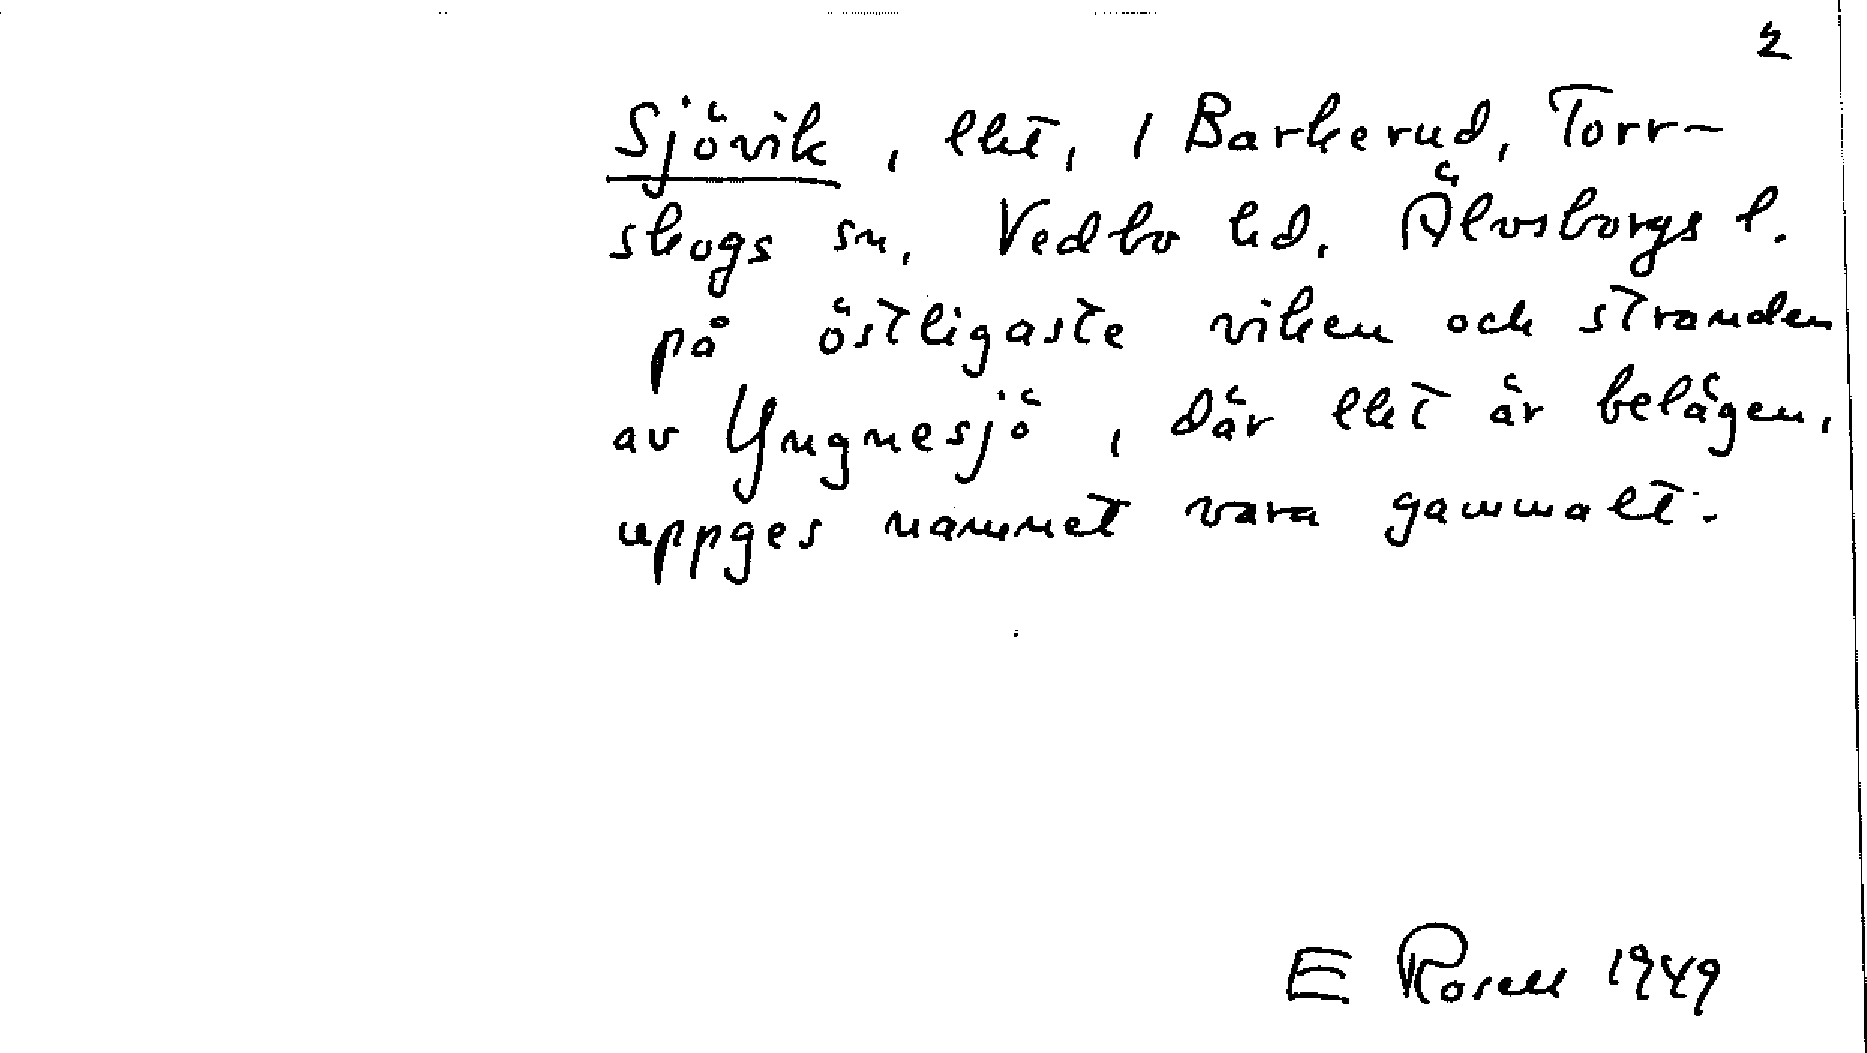 2
Sjövik, lht, 1 Barkerud, Torr-
skogs sn, Vedbo hd. Älvsborgs l.
på östligaste viken och stranden
av Yngnesjö, där lht är belägen,
uppges namnet vara gammalt.
E Rosell 1949